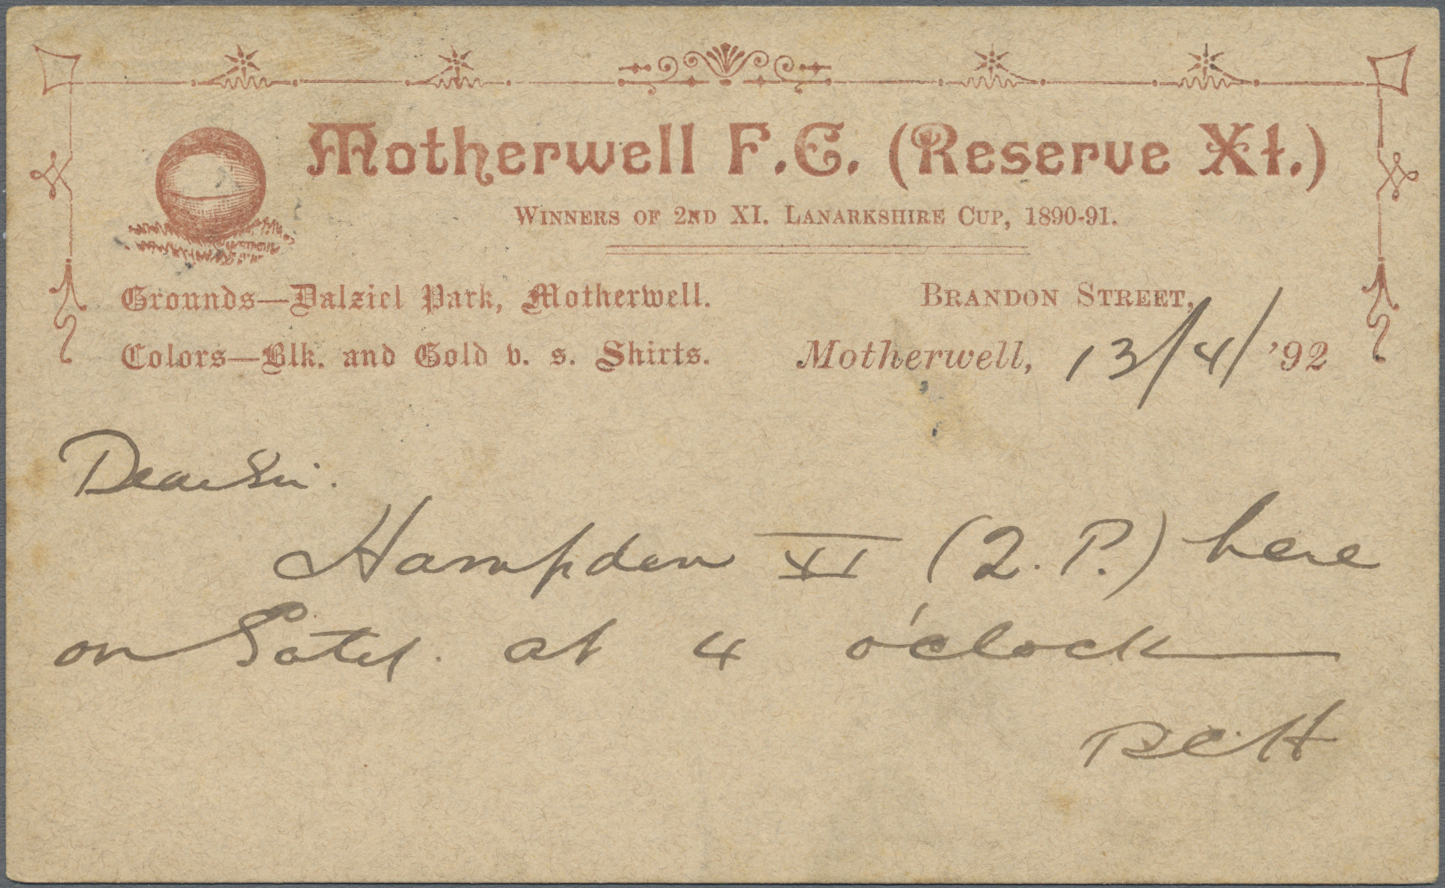 Motherwell F.C. (Reserve XI.)
Winners of 2nd XI. Lanarkshire Cup, 1890-91.
Grounds—Dalziel Park, Motherwell.
Brandon Street,
Colors—Blk. and Gold v. s. Shirts.
Motherwell, 13/4/'92
Dear Sir.
Hampden XI (2. P.) here
on Satd. at 4 o'clock
RCH